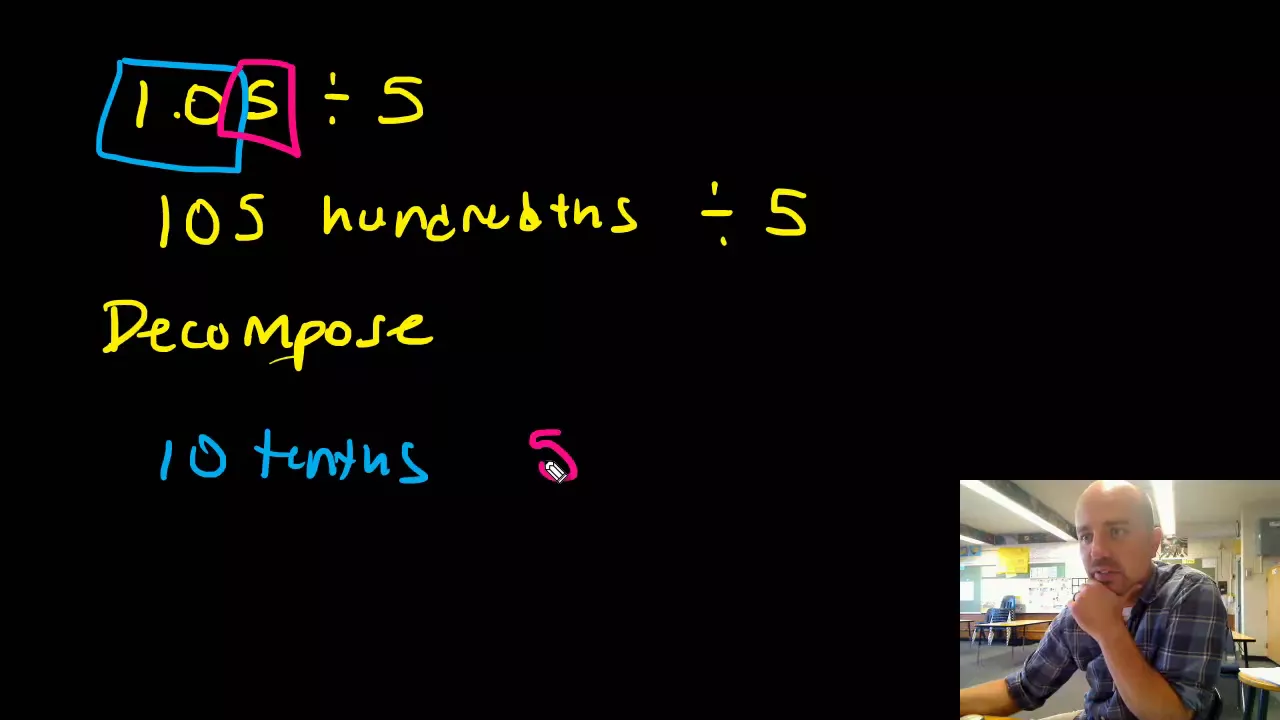 1.05 ÷ 5
105 hundredths ÷ 5
Decompose
10 tenths 5